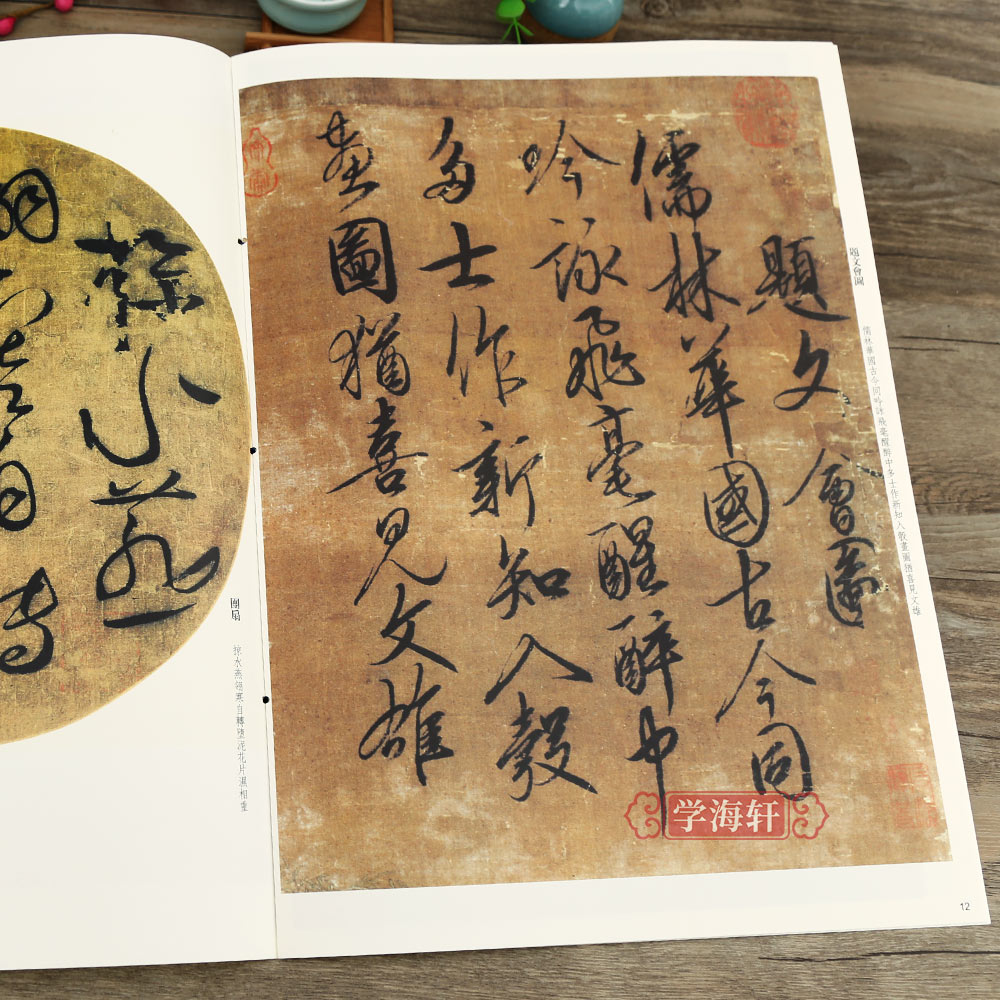 題文會圖
儒林華國古今同吟詠飛毫醒醉中多士作新知入彀畫圖猶喜見文雄
題文會圖
儒林華國古今同
吟詠飛毫醒醉中
多士作新知入彀
畫圖猶喜見文雄
学海轩
12
掠水燕
翎寒自轉
團扇
掠水燕翎寒自轉墮泥花片濕相重